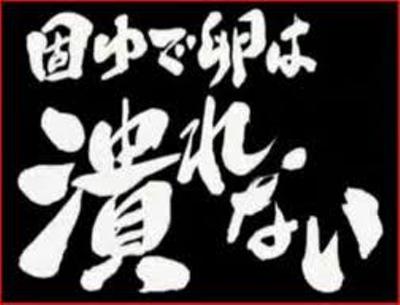 固ゆで卵は
潰れない